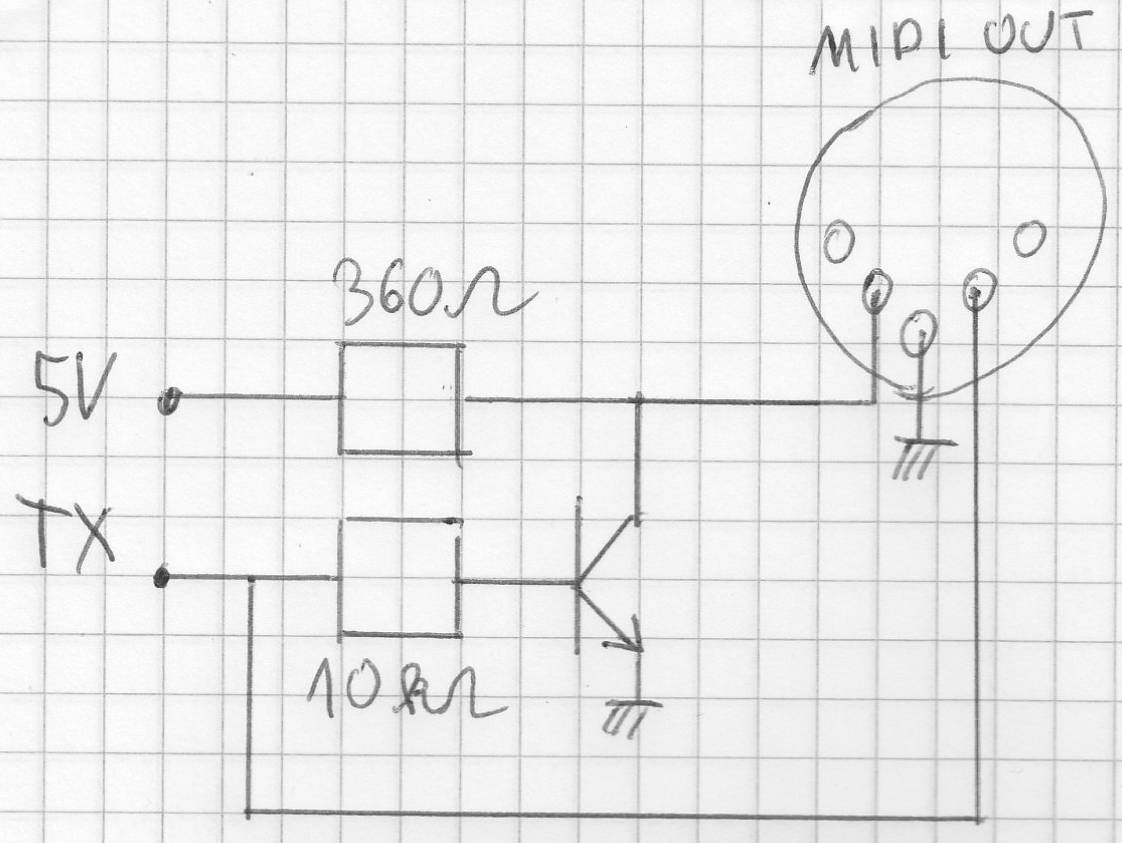 MIDI OUT
360Ω
5V
TX
10kΩ